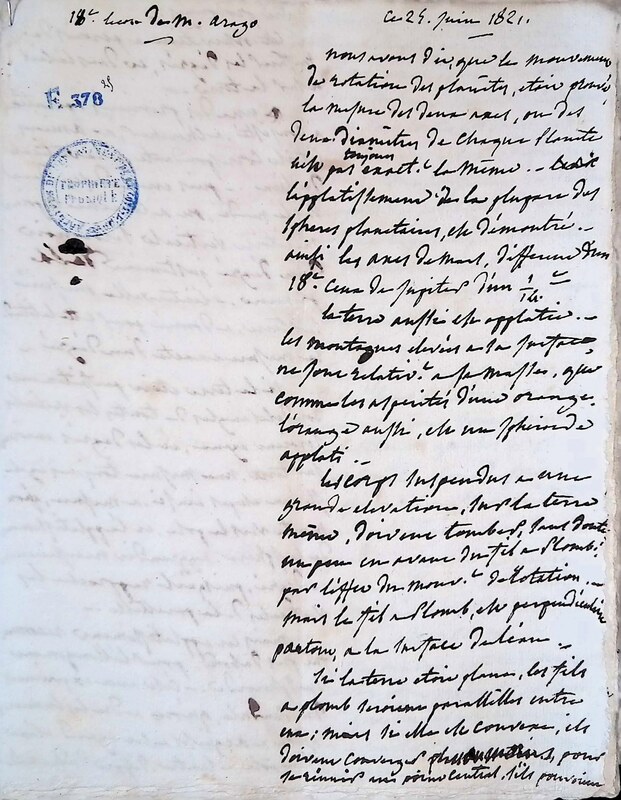 18e. lecon de m. arago
ce 25. juin 1821.
F 378
PROPRIÉTÉ
PUBLIQUE
nous avons dit, que le mouvement
de rotation des planetes, etoit prouvé
la mesure des deux axes, ou des
deux diamètres de chaque planete
n'est pas toujours exactt. la même. —
l'applatissement de la plupart des
spheres planetaires, est démontré. —
ainsi les axes de mars, different d'un
18e. ceux de jupiter d'un 1/14. e
la terre aussi est applatie. —
les montagnes elevées a la surface,
ne sont relativt. a sa masse, que
comme les asperités d'une orange.
l'orange aussi, est un sphéroide
applati. —
les corps suspendus a une
grande elevation, sur la terre
même, doivent tomber, sans doute
un peu en avant du fil a plomb,
par l'effet du mouvt. de rotation. —
mais le fil a plomb, est perpendiculaire
partout, a la surface de l'eau. —
si la terre etoit plane, les fils
a plomb seroient paralleles entre
eux ; mais si elle est convexe, ils
doivent converger pour
se reunir au point central, s'ils pouvoient